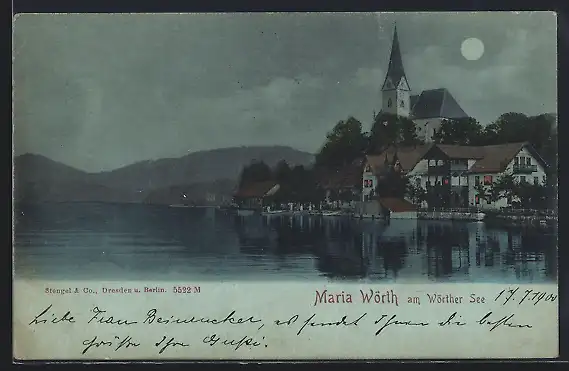 Stengel & Co., Dresden u. Berlin. 5522 M
Maria Wörth am Wörther See 17.7.1900
Liebe Frau Beinücker, es sendet Ihnen die besten
Grüße Ihre Guski.